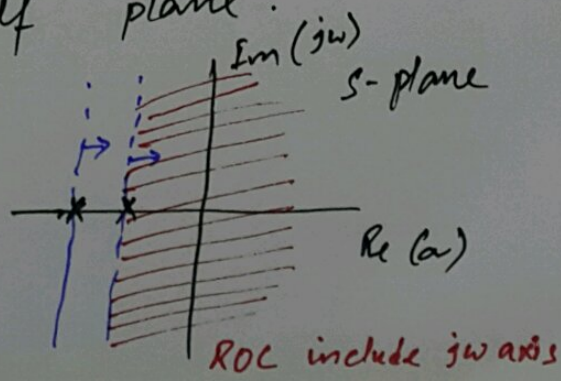 plane.
Im (jw)
S-plane
Re (σ)
ROC include jw axis